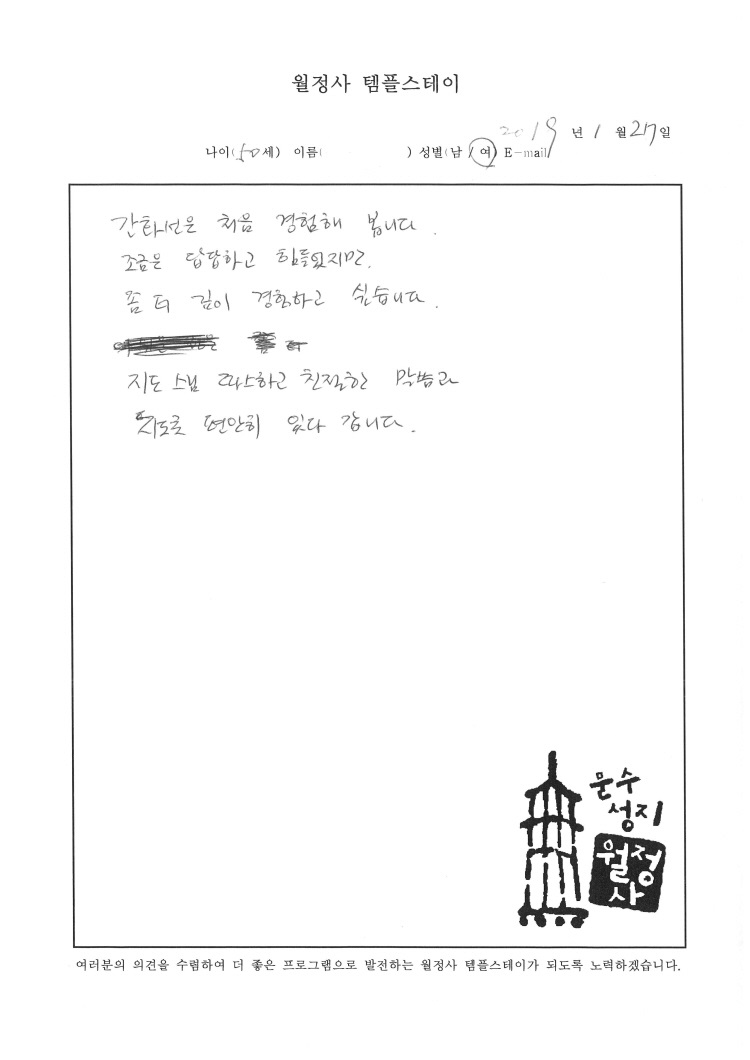 월정사 템플스테이
2019 년 1 월 27 일
나이(50세) 이름( ) 성별(남/여) E-mail/
간화선은 처음 경험해 봅니다.
조금은 답답하고 힘들었지만.
좀 더 깊이 경험하고 싶습니다.
좀 더
지도 스님 따스하고 친절한 말씀과
지도로 편안히 있다 갑니다.
문수
성지
월정
사
여러분의 의견을 수렴하여 더 좋은 프로그램으로 발전하는 월정사 템플스테이가 되도록 노력하겠습니다.